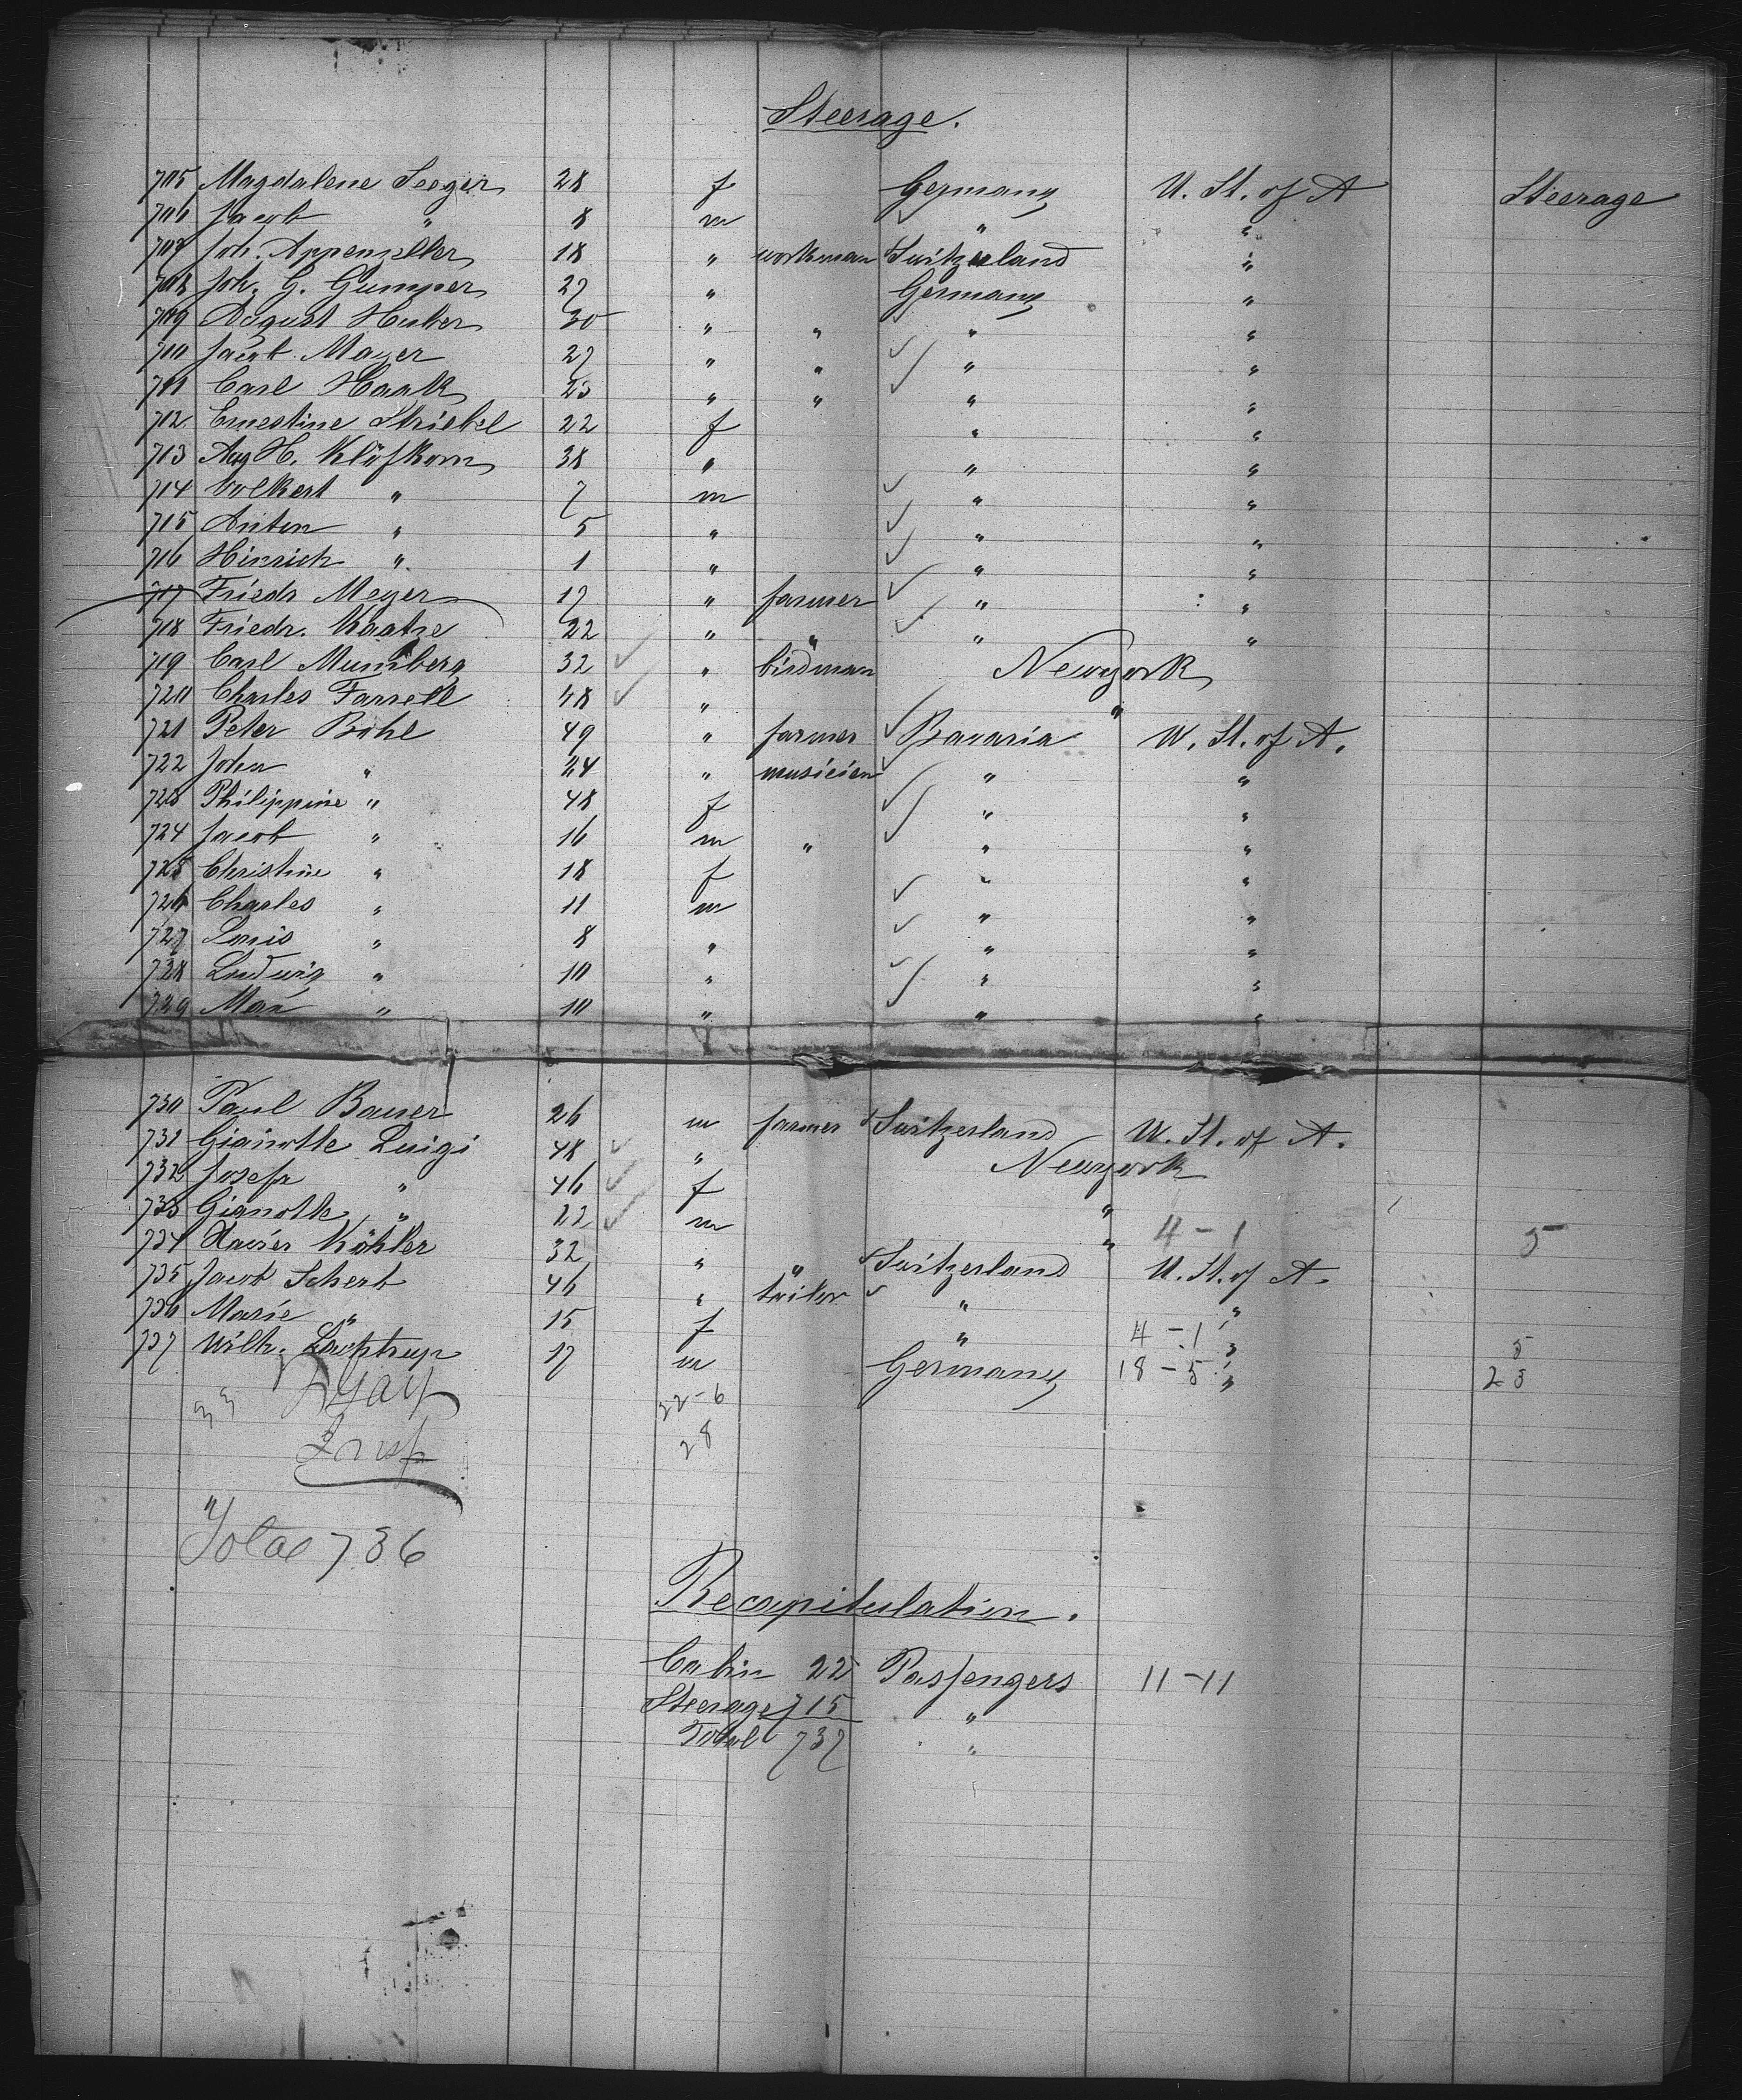 Steerage.
705 Magdalene Seeger 28 f Germany U. St. of A Steerage
706 Jacob " 8 m " "
707 Joh. Appenzeller 18 " workman Switzerland "
708 Joh. G. Gumper 27 " Germany "
709 August Huber 30 " " " "
710 Jacob Mayer 27 " " " "
711 Carl Haak 25 " " " "
712 Ernestine Striebel 22 f " "
713 Aug H. Klöfkorn 38 " " "
714 Volkert " 7 m " "
715 Anton " 5 " " "
716 Hinrich " 1 " " "
717 Friedr Meyer 17 " farmer " "
718 Friedr. Kaatze 22 " " " "
719 Carl Mumberg 32 " birdman Newyork
720 Charles Farrell 48 " "
721 Peter Bohl 49 " farmer Bavaria U. St. of A.
722 John " 24 " musician " "
723 Philippine " 48 f " "
724 Jacob " 16 m " " "
725 Christine " 18 f " "
726 Charles " 11 m " "
727 Louis " 8 " " "
728 Ludwig " 10 " " "
729 Max " 10 " " "
730 Paul Bauer 26 m farmer Switzerland U. St. of A.
731 Gianotte Luigi 48 " Newyork
732 Josefa " 46 f "
733 Gianotte " 22 m " 4-1 5
734 Xavier Köhler 32 " " Switzerland U. St. of A.
735 Jacob Scherb 46 " tailor " "
736 Marie " 15 f " 4-1 " 5
737 Wilh. 17 m Germany 18-5 " 23
33 22-6
28
Total 736
Recapitulation.
Cabin 22 Passengers 11-11
Steerage 715 "
Total 737 "